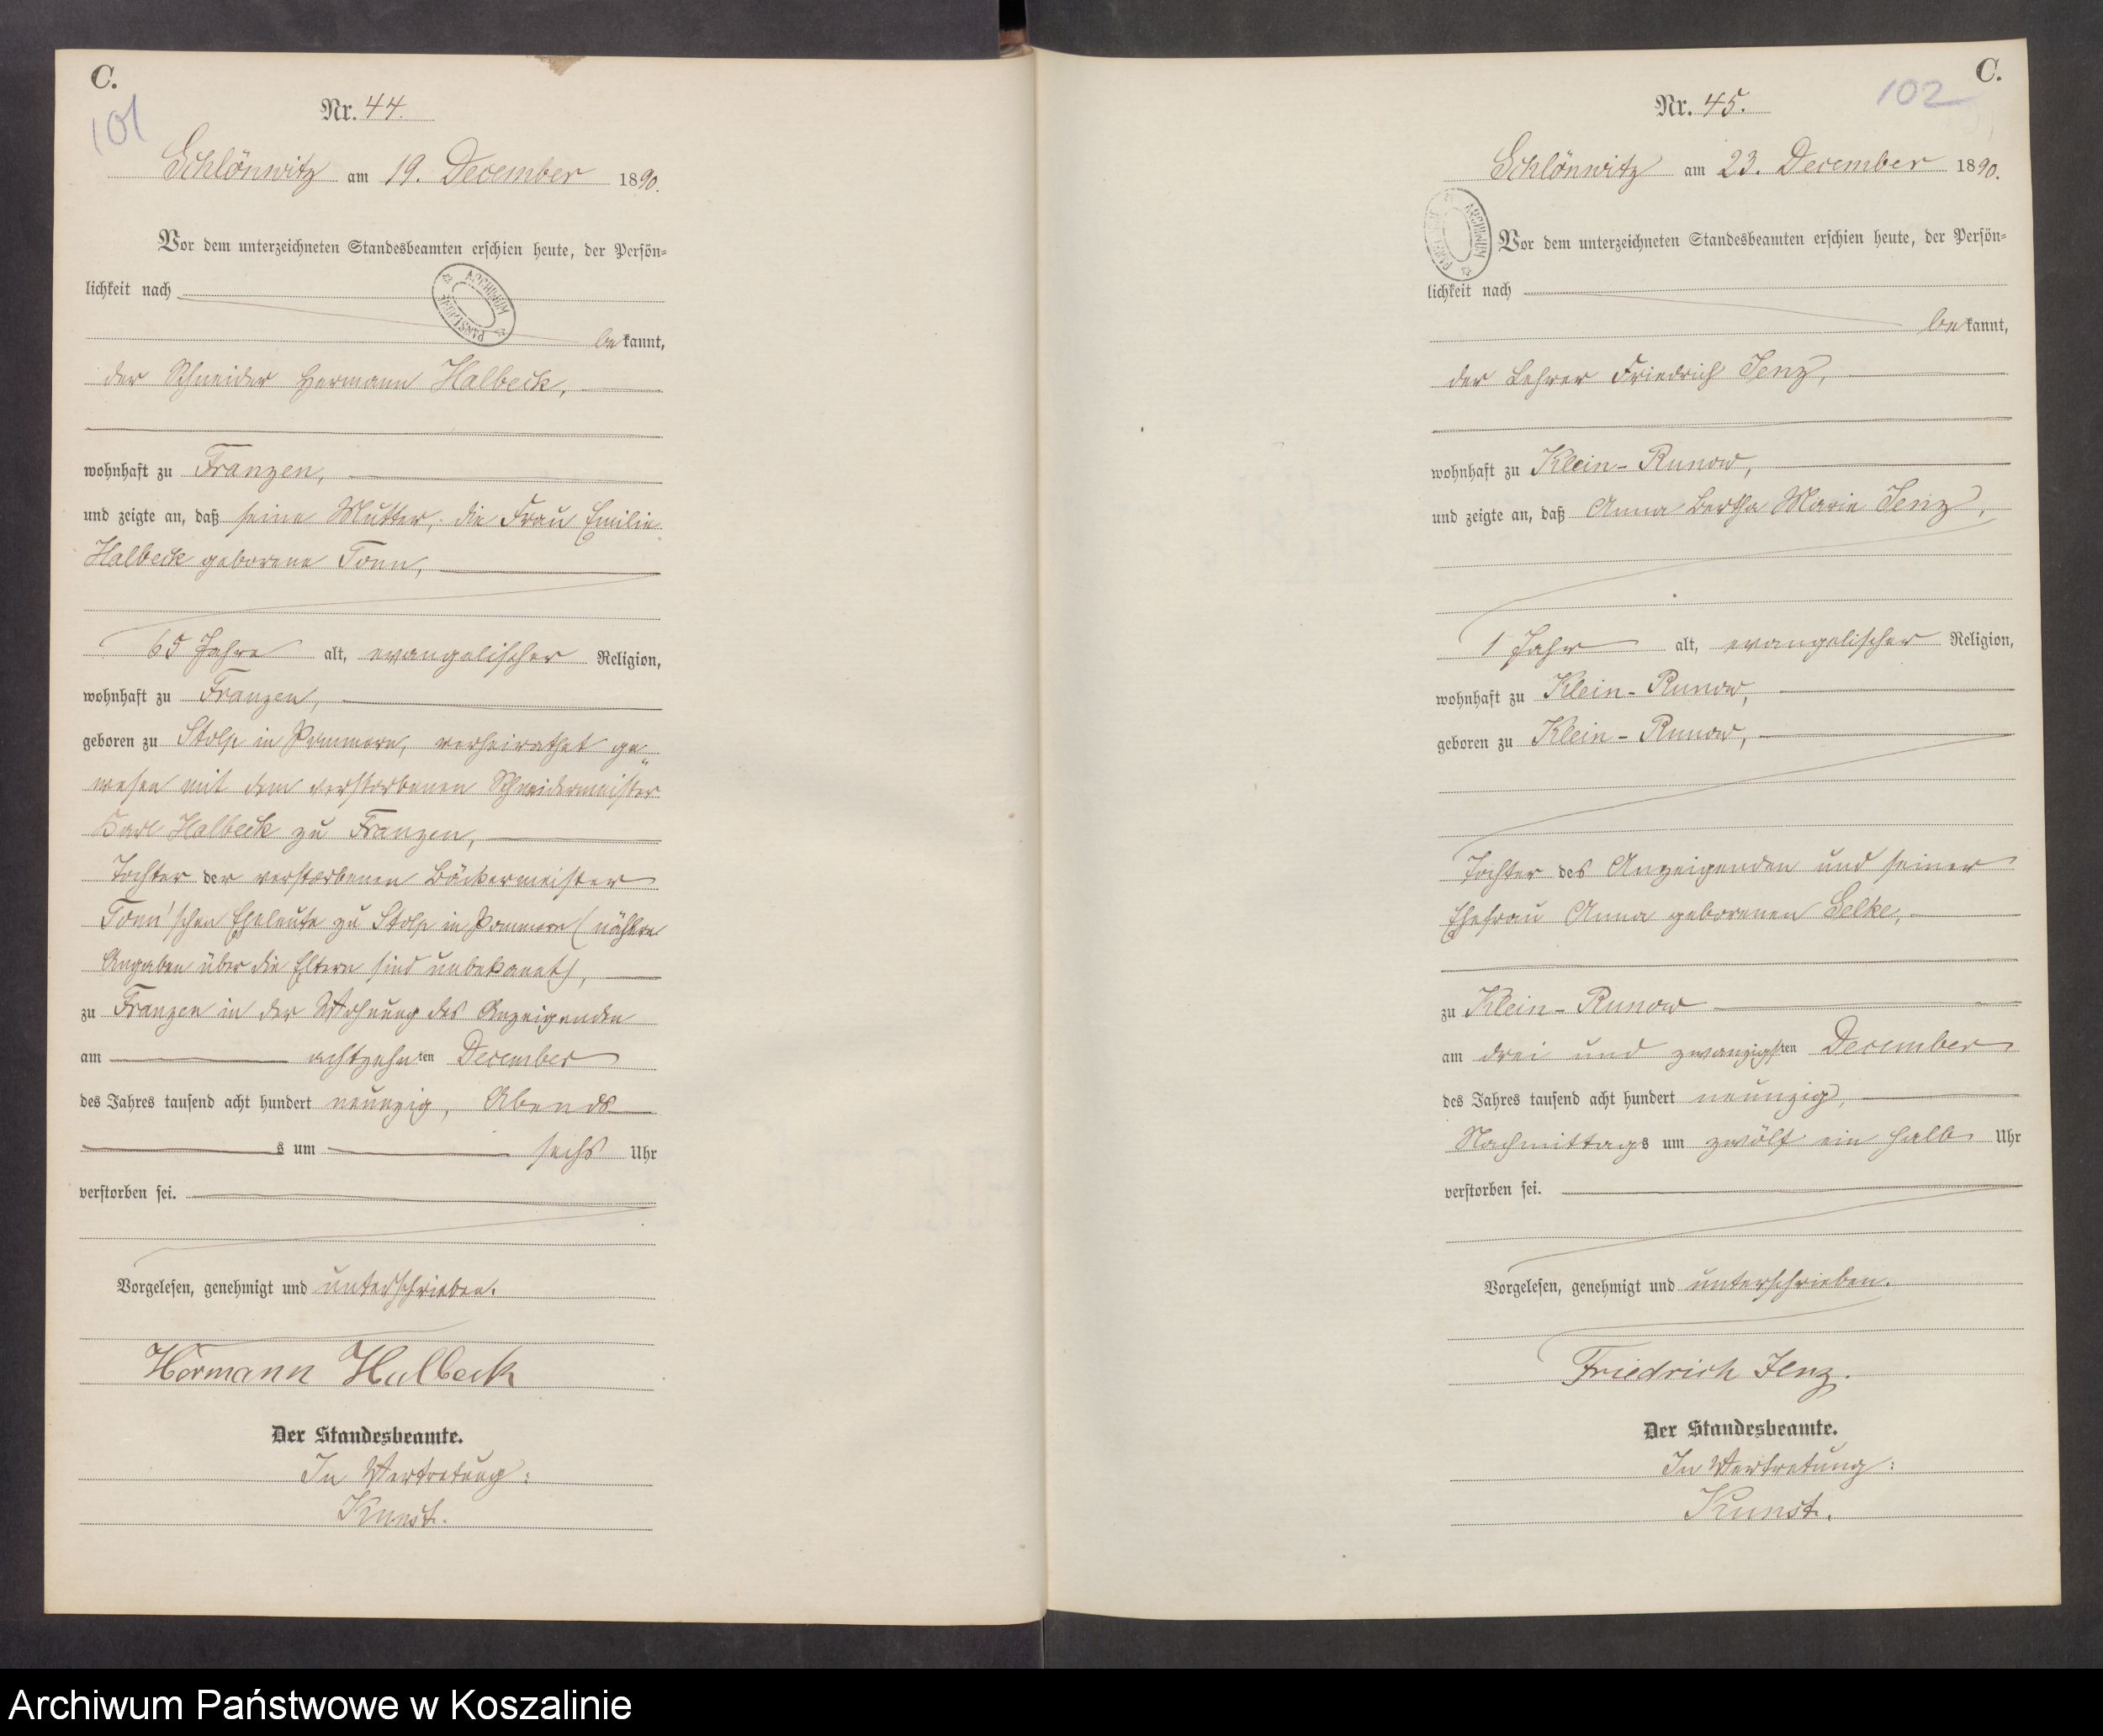 C.
101
Nr. 44.
Schlönwitz am 19. December 1890.
Vor dem unterzeichneten Standesbeamten erschien heute, der Persön-
lichkeit nach
ARCHIWUM PAŃSTWOWE
bekannt,
der Schneider Hermann Halbeck,
wohnhaft zu Franzen,
und zeigte an, daß seine Mutter, die Frau Emilie
Halbeck geborene Tonn,
65 Jahre alt, evangelischer Religion,
wohnhaft zu Franzen,
geboren zu Stolp in Pommern, verheirathet ge-
wesen mit dem verstorbenen Schneidermeister
Karl Halbeck zu Franzen,
Tochter der verstorbenen Bäckermeister
Tonn'schen Eheleute zu Stolp in Pommern (nähere
Angaben über die Eltern sind unbekannt),
zu Franzen in der Wohnung des Anzeigenden
am achtzehnten December
des Jahres tausend acht hundert neunzig, Abends
s um sechs Uhr
verstorben sei.
Vorgelesen, genehmigt und unterschrieben.
Hermann Halbeck
Der Standesbeamte.
In Vertretung:
Kunst.
C.
102
Nr. 45.
Schlönwitz am 23. December 1890.
ARCHIWUM PAŃSTWOWE
Vor dem unterzeichneten Standesbeamten erschien heute, der Persön-
lichkeit nach
bekannt,
der Lehrer Friedrich Jenz,
wohnhaft zu Klein-Runow,
und zeigte an, daß Anna Bertha Marie Jenz,
1 Jahr alt, evangelischer Religion,
wohnhaft zu Klein-Runow,
geboren zu Klein-Runow,
Tochter des Anzeigenden und seiner
Ehefrau Anna geborenen Selke,
zu Klein-Runow
am drei und zwanzigsten December
des Jahres tausend acht hundert neunzig,
Nachmittags um zwölf ein halb Uhr
verstorben sei.
Vorgelesen, genehmigt und unterschrieben.
Friedrich Jenz.
Der Standesbeamte.
In Vertretung:
Kunst.
Archiwum Państwowe w Koszalinie